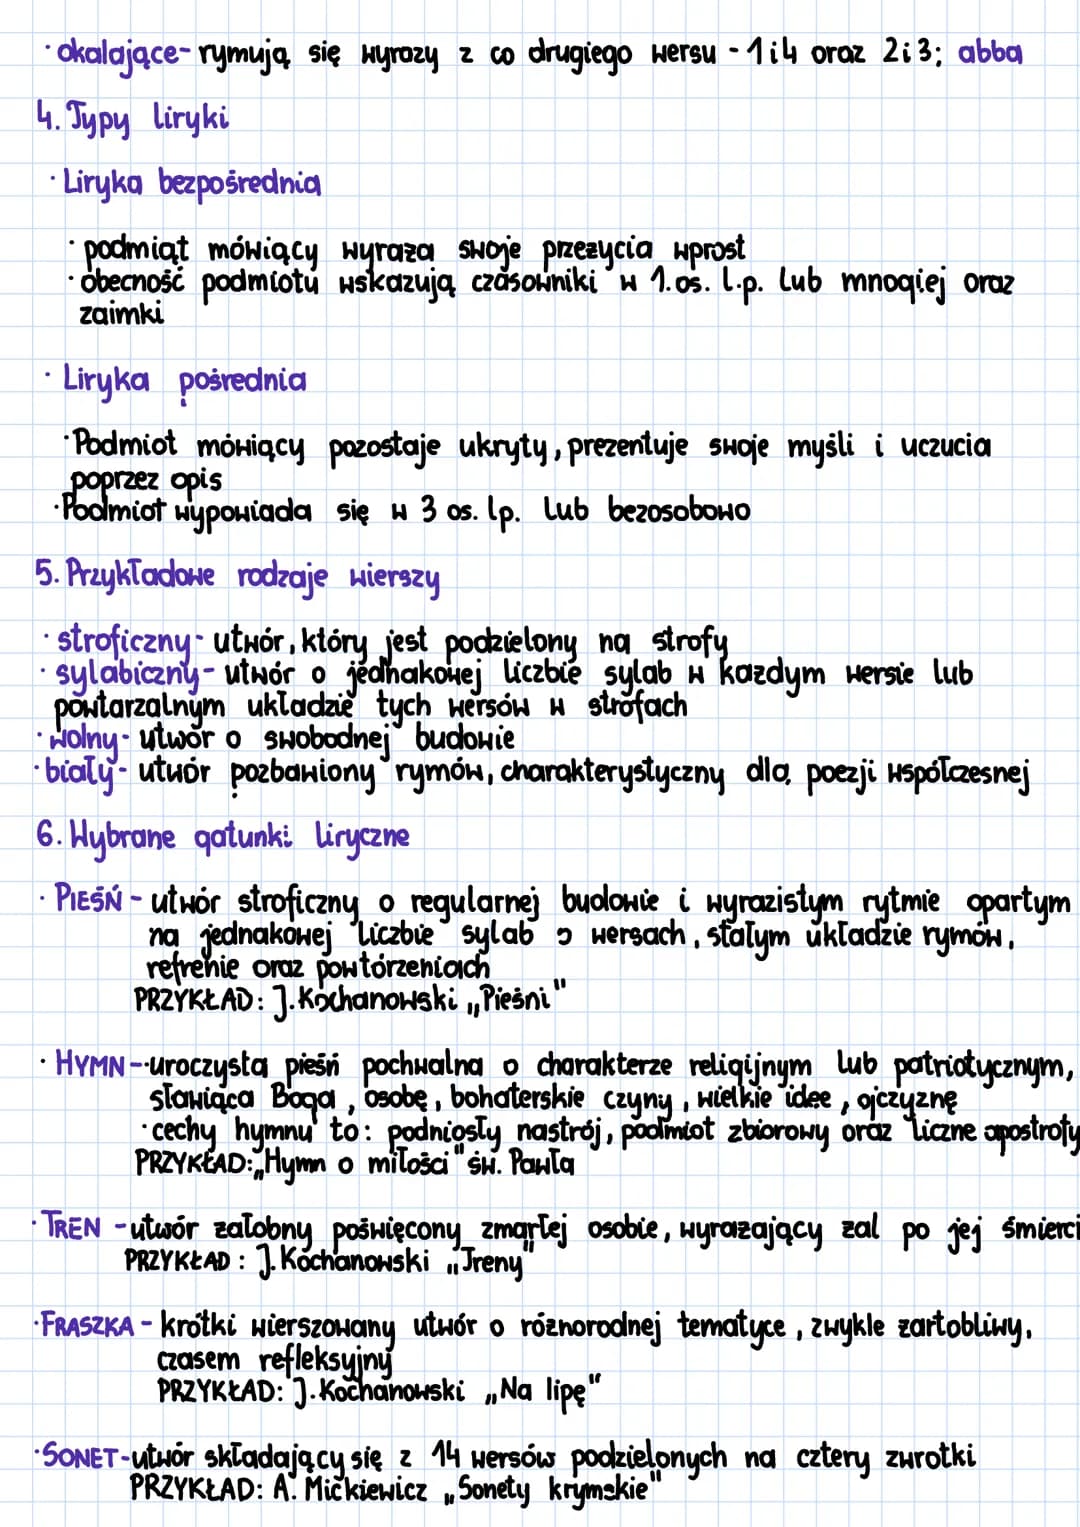 · okalające- rymują się wyrazy z co drugiego wersu - 1i4 oraz 2i3; abba
4. Typy liryki
· Liryka bezpośrednia
· podmiąt mówiący wyraża swoje przeżycia wprost
· obecność podmiotu wskazują czasowniki w 1.os. l.p. lub mnogiej oraz
zaimki
· Liryka pośrednia
· Podmiot mówiący pozostaje ukryty, prezentuje swoje myśli i uczucia
poprzez opis
· Podmiot wypowiada się w 3 os. lp. lub bezosobowo
5. Przykładowe rodzaje wierszy
· stroficzny- utwór, który jest podzielony na strofy
· sylabiczny- utwór o jednakowej liczbie sylab w każdym wersie lub
powtarzalnym układzie tych wersów w strofach
· wolny- utwór o swobodnej budowie
· biały- utwór pozbawiony rymów, charakterystyczny dla poezji współczesnej
6. Wybrane gatunki liryczne
· PIEŚŃ - utwór stroficzny o regularnej budowie i wyrazistym rytmie opartym
na jednakowej liczbie sylab o wersach, stałym układzie rymów,
refrenie oraz powtórzeniach
PRZYKŁAD: J.Kochanowski „Pieśni"
· HYMN -·uroczysta pieśń pochwalna o charakterze religijnym lub patriotycznym,
sławiąca Boga, osobę, bohaterskie czyny, wielkie idee, ojczyznę
· cechy hymnu to: podniosły nastrój, podmiot zbiorowy oraz liczne apostrofy
PRZYKŁAD: „Hymn o miłości" św. Pawła
· TREN - utwór żałobny poświęcony zmarłej osobie, wyrażający żal po jej śmierci
PRZYKŁAD: J.Kochanowski „Treny"
· FRASZKA - krótki wierszowany utwór o różnorodnej tematyce, zwykle żartobliwy,
czasem refleksyjny
PRZYKŁAD: J.Kochanowski „Na lipę"
· SONET-utwór składający się z 14 wersów podzielonych na cztery zwrotki
PRZYKŁAD: A. Mickiewicz „Sonety krymskie"